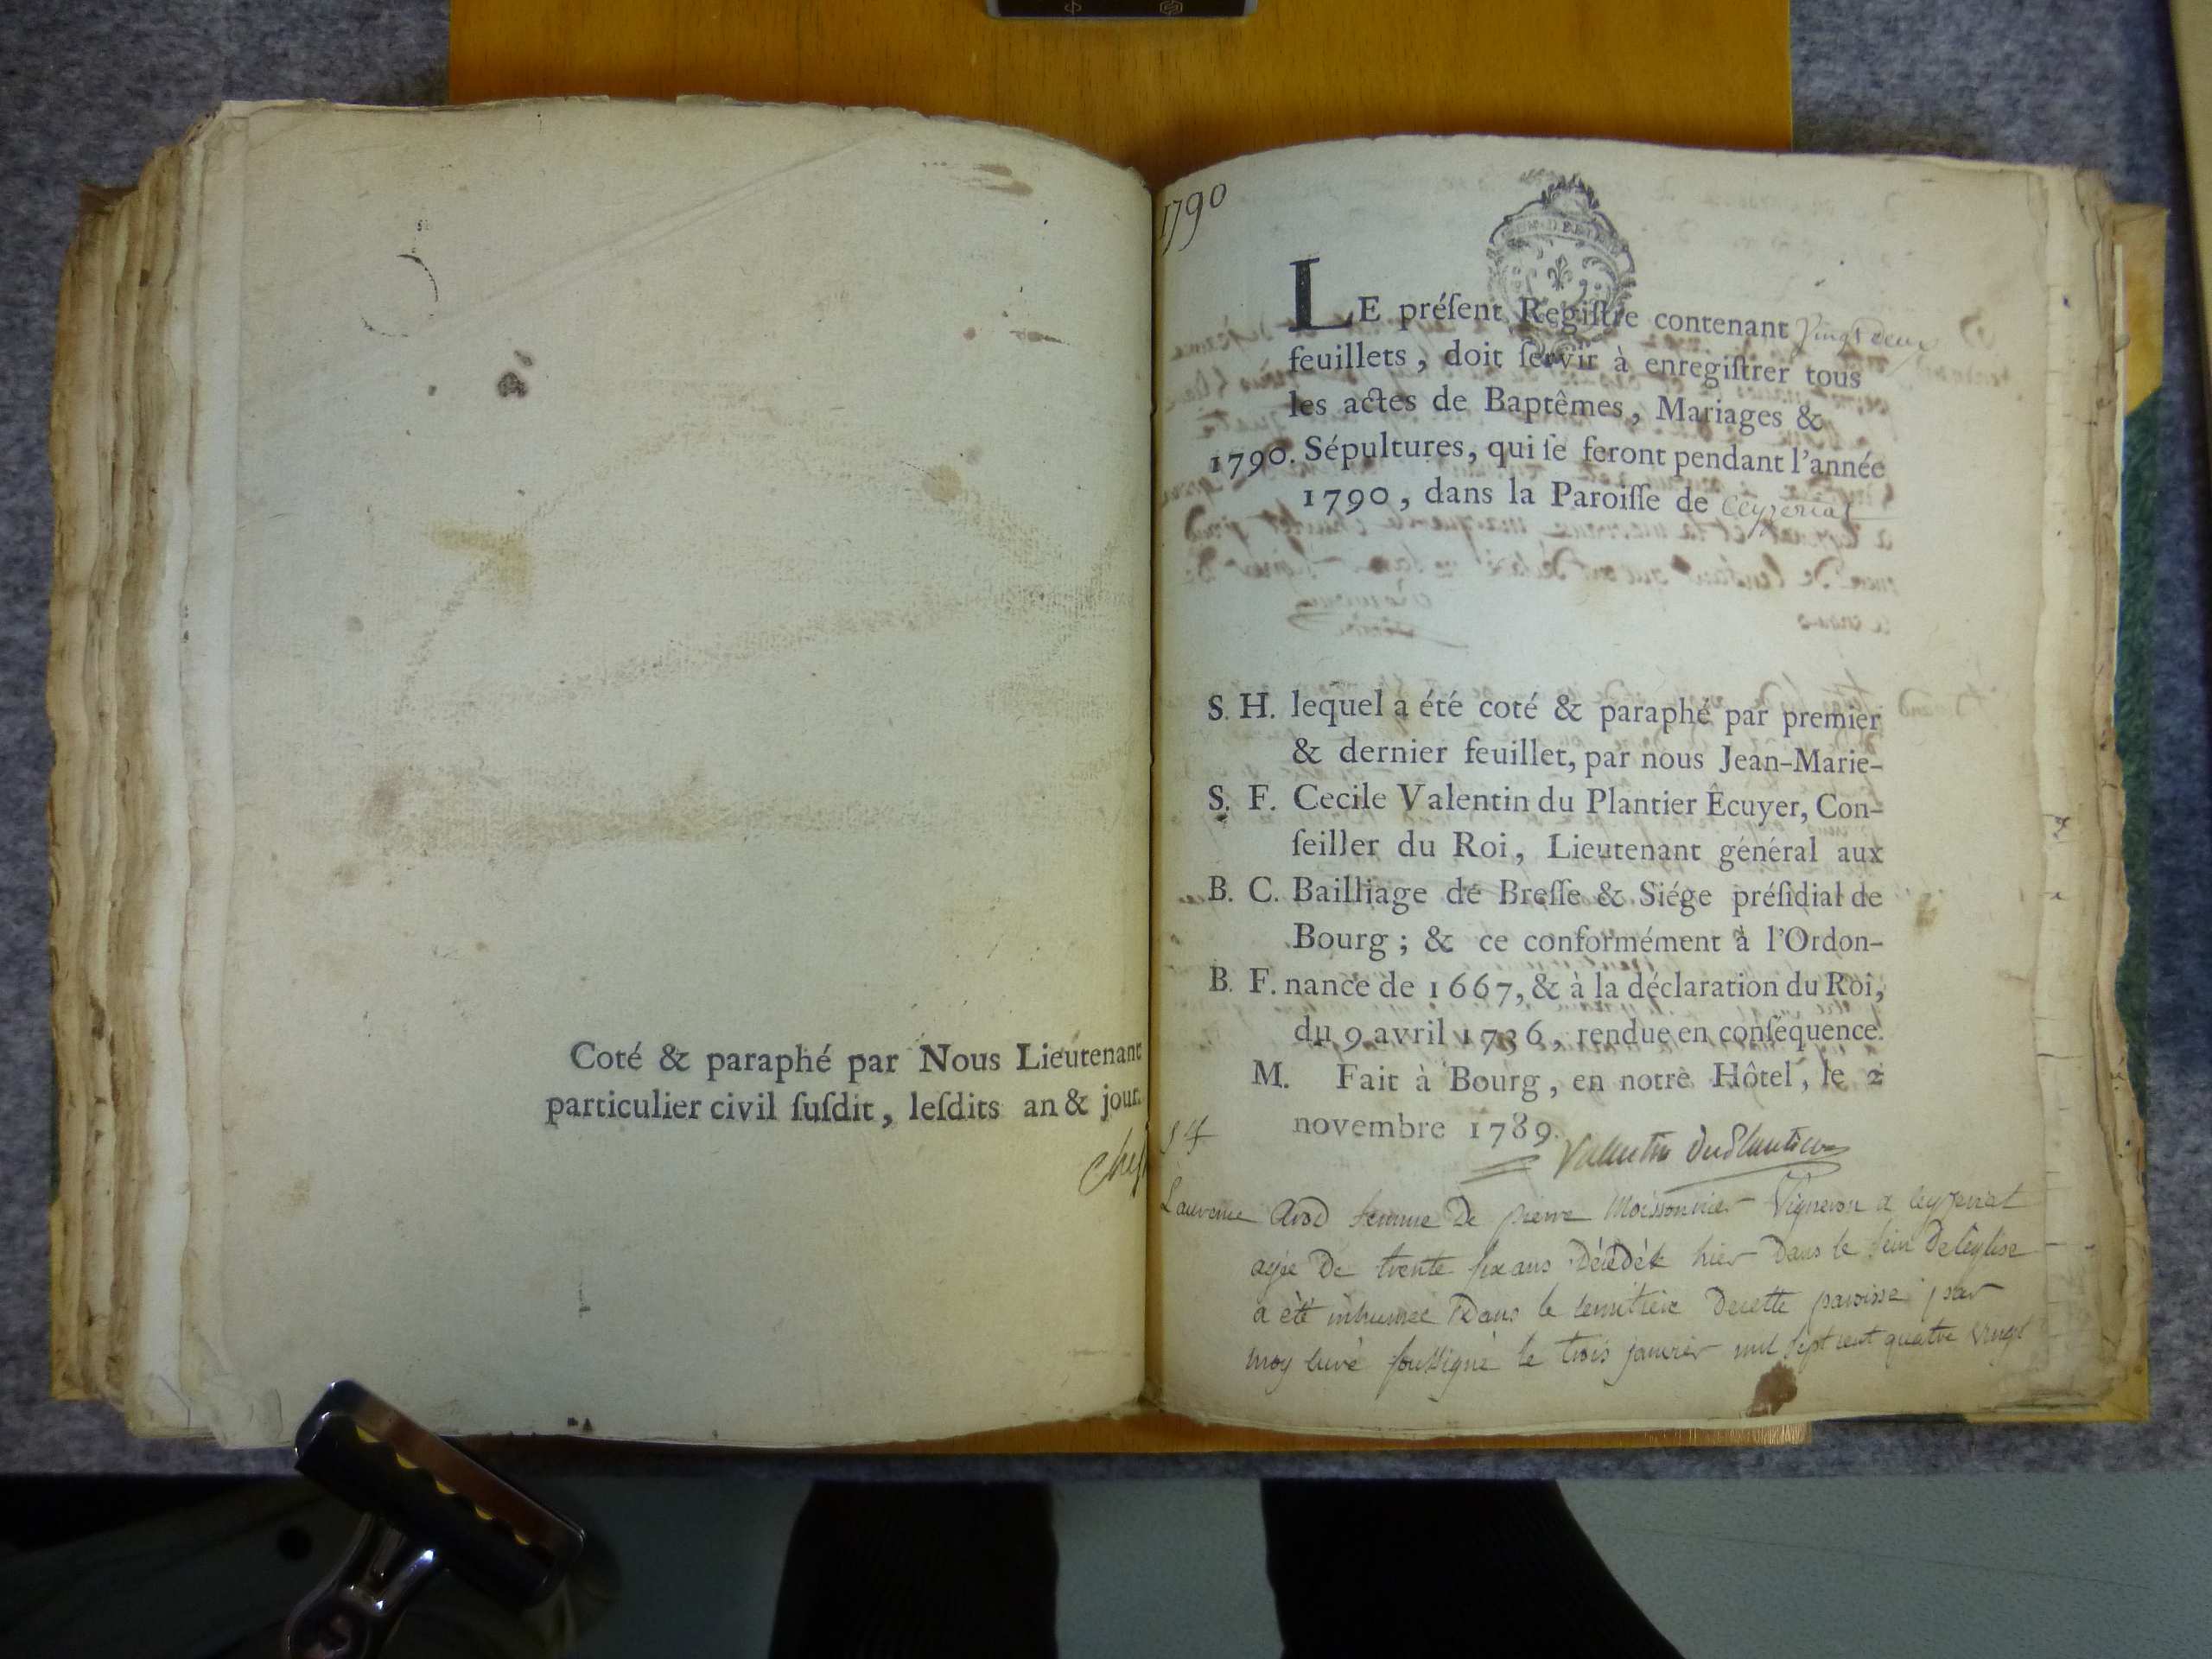 Coté & paraphé par Nous Lieutenant
particulier civil ſuſdit, leſdits an & jour.
1790
LE préſent Regiſtre contenant Vingt deux
feuillets, doit ſervir à enregiſtrer tous
les actes de Baptêmes, Mariages &
1790. Sépultures, qui ſe feront pendant l'année
1790, dans la Paroiſſe de Ceyzeriat
S. H. lequel a été coté & paraphé par premier
& dernier feuillet, par nous Jean-Marie-
S. F. Cecile Valentin du Plantier Êcuyer, Con-
ſeiller du Roi, Lieutenant général aux
B. C. Bailliage de Breſſe & Siége préſidial de
Bourg; & ce conformément à l'Ordon-
B. F. nance de 1667, & à la déclaration du Roi,
du 9 avril 1736, rendue en conſéquence.
M. Fait à Bourg, en notre Hôtel, le 2
novembre 1789.
Valentin DuPlantier
femme De pierre Moissonnier Vigneron a Ceyzeriat
agée De trente six ans Décédée hier Dans le sein De leglise
a èté inhumée Dans le cemitiere Decette paroisse par
moy curé soussigné le trois janvier mil sept cent quatre vingt